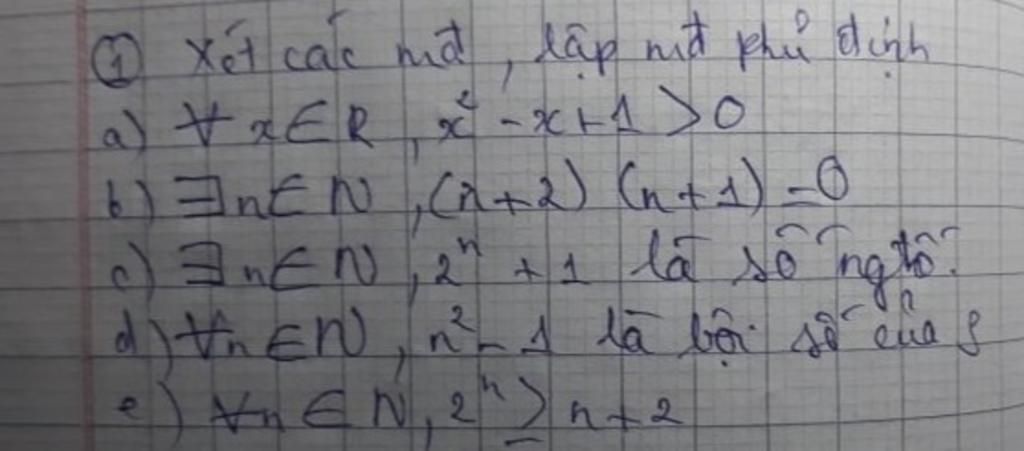 ① Xét các mđ, lập mđ phủ định
a) ∀x∈R, x² - x + 1 > 0
b) ∃n∈N, (n+2) (n+1) = 0
c) ∃n∈N, 2ⁿ + 1 là số ng tố.
d) ∀n∈N, n² - 1 là bội số của 8
e) ∀n∈N, 2ⁿ ≥ n + 2